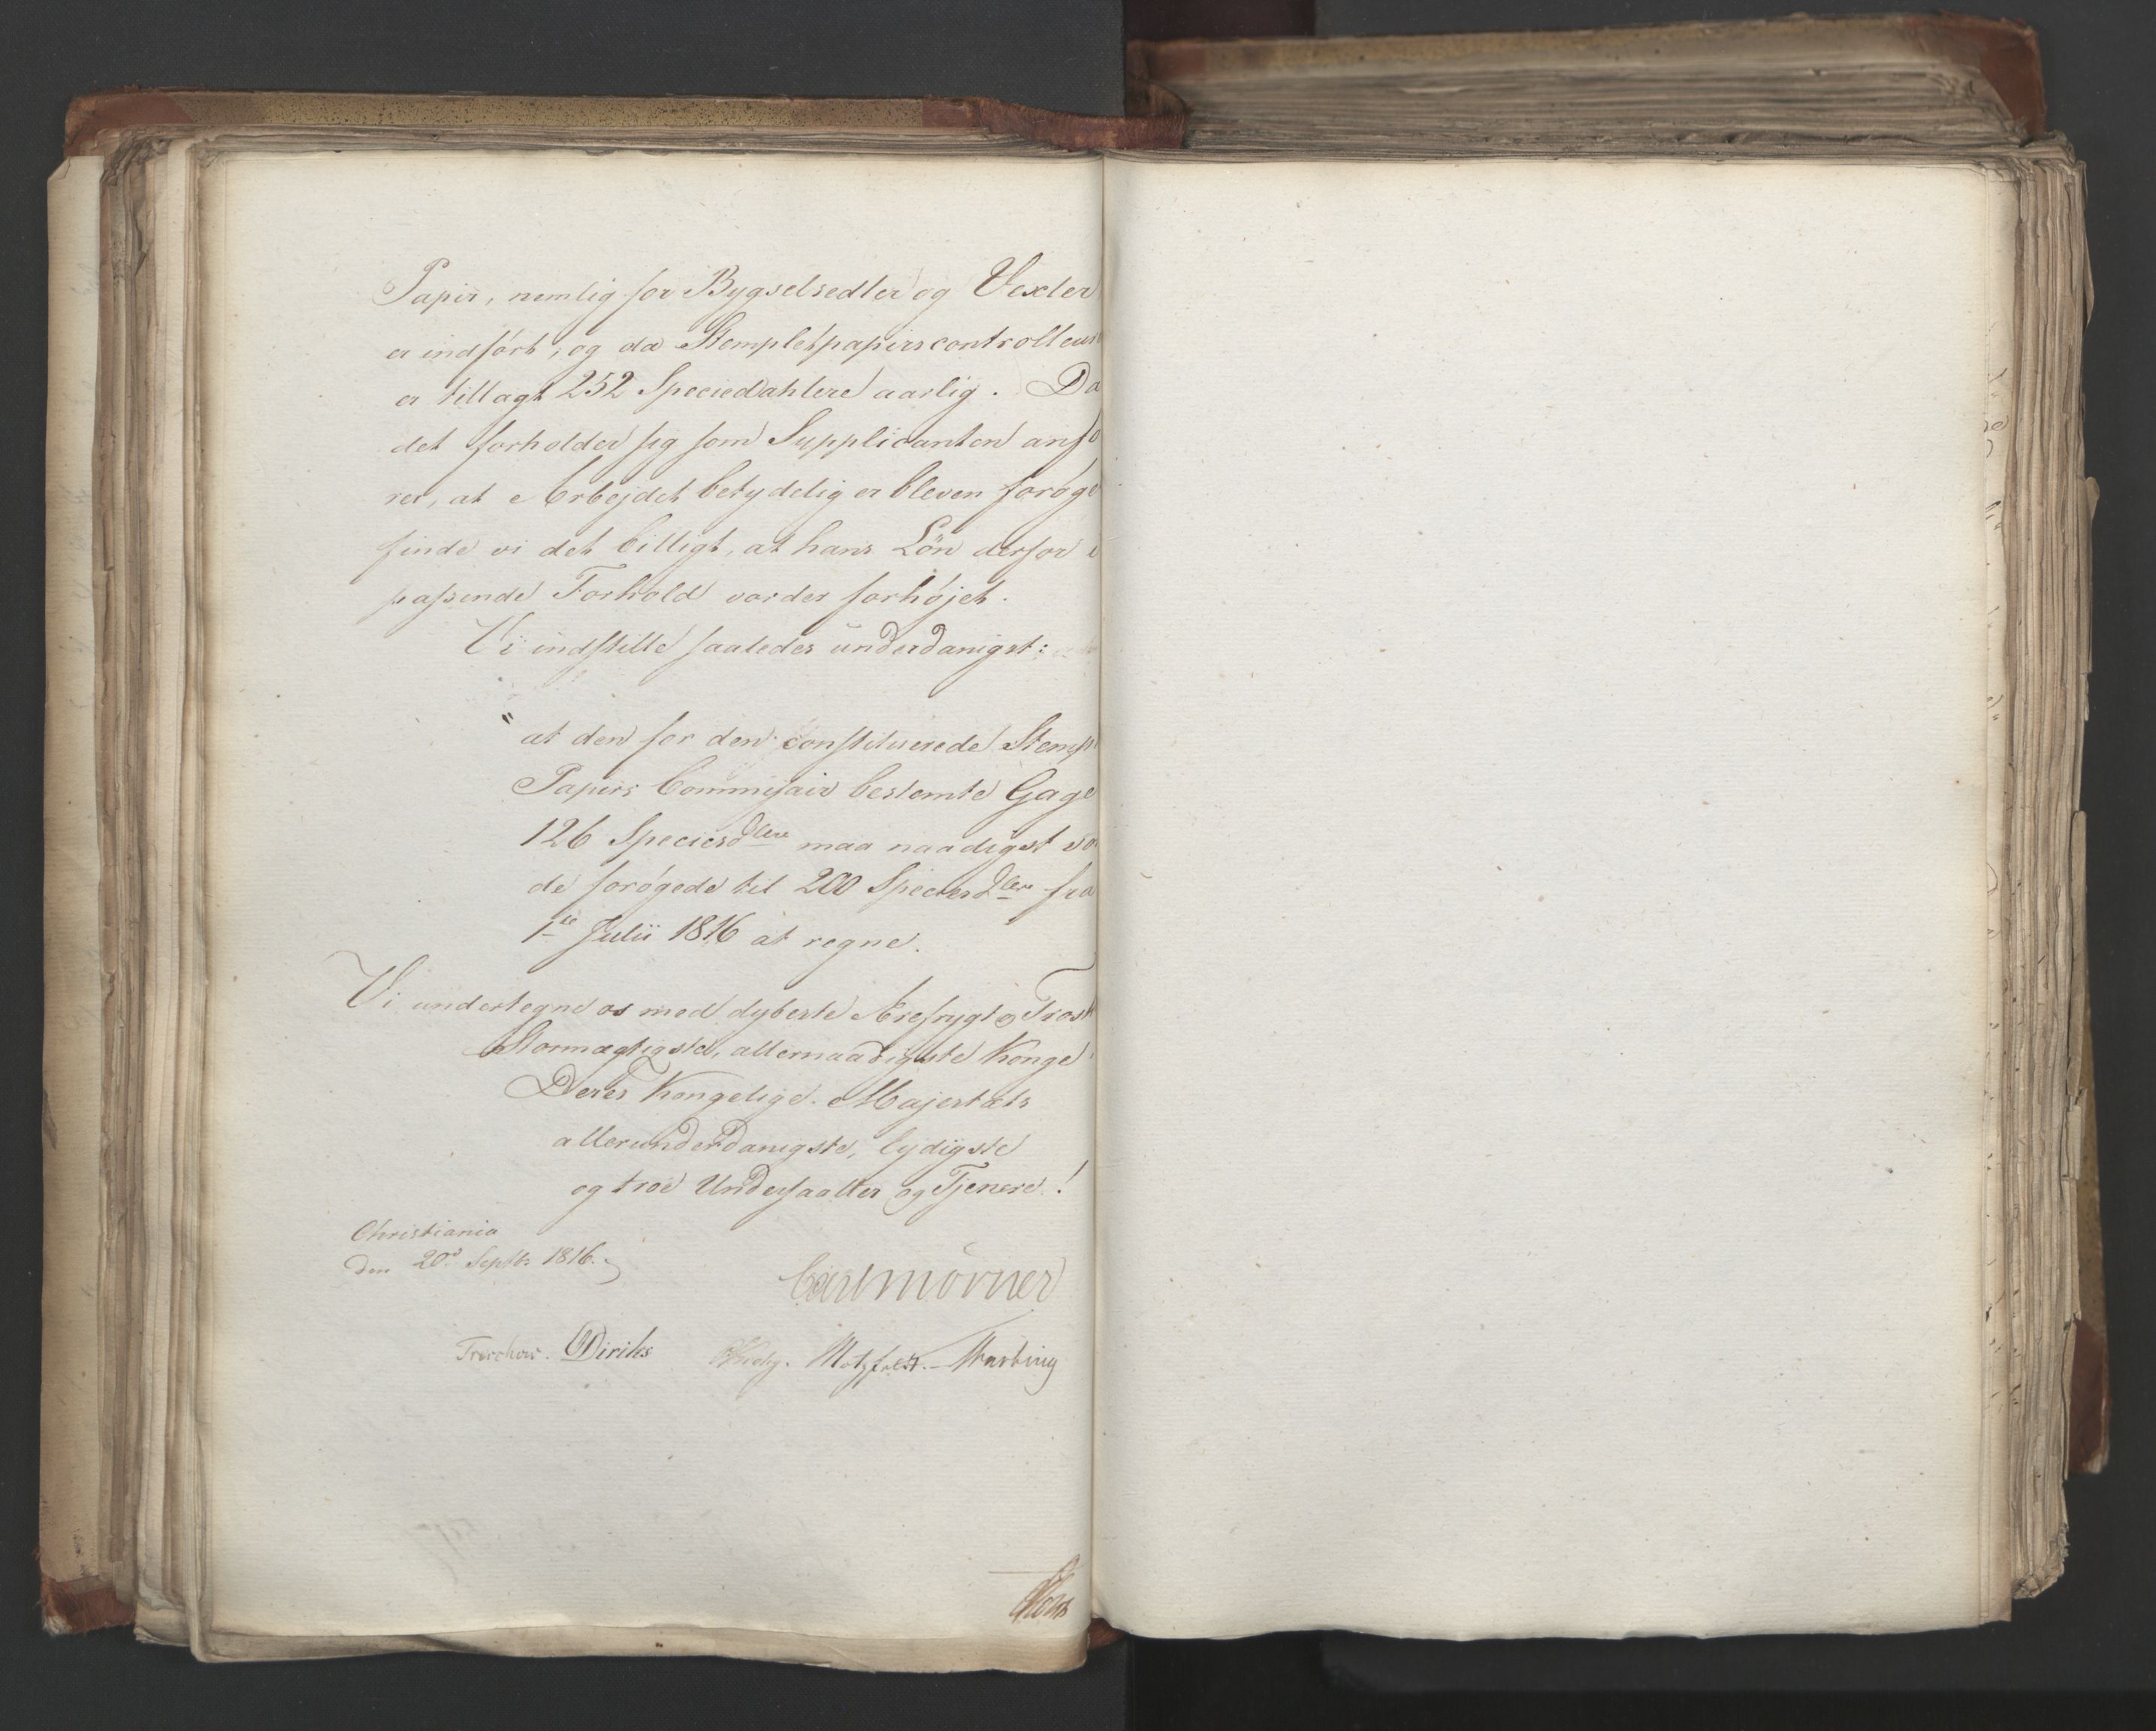 Papir, nemlig for Bygselsedler og Vexler
er indført, og da Stempletpapirscontrolleur
er tillagt 252 Speciedahlere aarlig. Da
det forholder sig som Supplicanten anfø
rer, at Arbejdet betydelig er bleven forøge
finde vi det billigt, at hans Lön derfor i
passende Forhold vorder forhøjet.
Vi indstille saaledes underdanigst:
"at den for den constituerede Stempl
Papirs Commissair bestemte Gage
126 Speciesdlere maa naadigst vo
de forøgede til 200 Speciesdlere fra
1te Julii 1816 at regne.
Vi undertegne os med dybeste Ærefrygt og Trosk
Stormægtigste, allernaadigste Konge
Deres Kongelige Majestæts
allerunderdanigste, lydigste
og troe Undersaatter og Tjenere!
Christiania
den 20d Septbr 1816.
Carl Mörner
Treschow. Diriks Krieg. Motzfeldt.